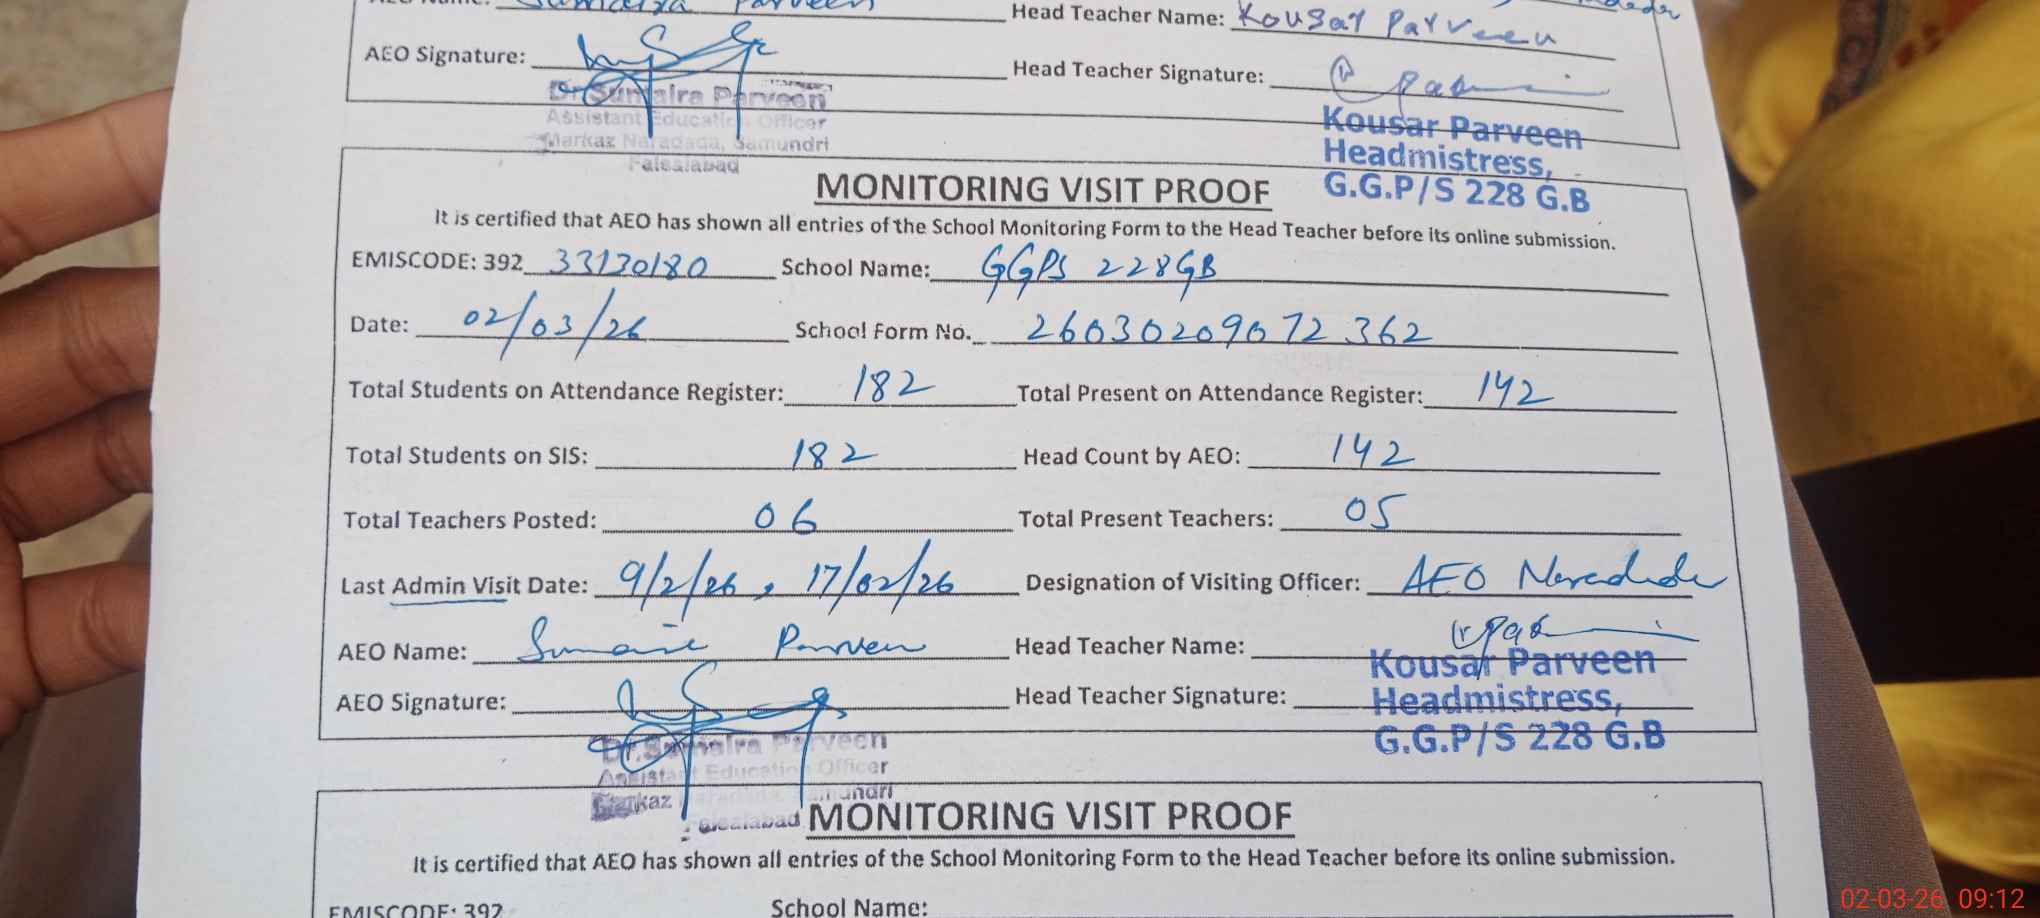 AEO Name: Sumaira Parveen Head Teacher Name: Kousar Parveen
AEO Signature: Head Teacher Signature:
Dr. Sumaira Parveen
Assistant Education Officer
Markaz Naradada, Samundri
Faisalabad
Kousar Parveen
Headmistress,
G.G.P/S 228 G.B
MONITORING VISIT PROOF
It is certified that AEO has shown all entries of the School Monitoring Form to the Head Teacher before its online submission.
EMISCODE: 392 33130180 School Name: GGPS 228GB
Date: 02/03/26 School Form No. 26030209072362
Total Students on Attendance Register: 182 Total Present on Attendance Register: 142
Total Students on SIS: 182 Head Count by AEO: 142
Total Teachers Posted: 06 Total Present Teachers: 05
Last Admin Visit Date: 9/2/26, 17/02/26 Designation of Visiting Officer: AEO
AEO Name: Sumaira Parveen Head Teacher Name:
AEO Signature: Head Teacher Signature:
Kousar Parveen
Headmistress,
G.G.P/S 228 G.B
Dr. Sumaira Parveen
Assistant Education Officer
Markaz Samundri
Faisalabad
MONITORING VISIT PROOF
It is certified that AEO has shown all entries of the School Monitoring Form to the Head Teacher before its online submission.
EMISCODE: 392 School Name:
02-03-26 09:12